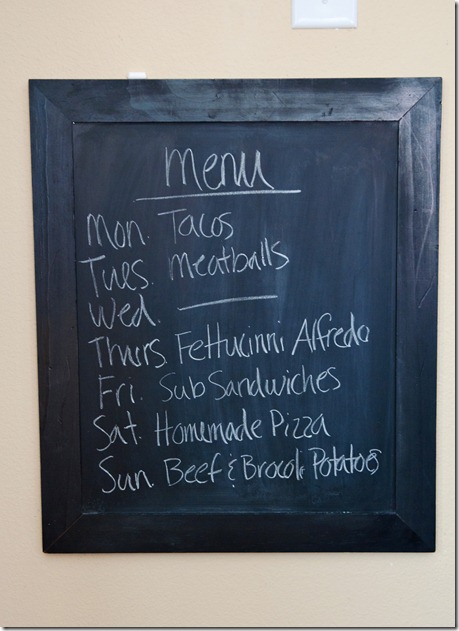 Menu
Mon. Tacos
Tues. Meatballs
Wed. ———
Thurs. Fettucinni Alfredo
Fri. Sub Sandwiches
Sat. Homemade Pizza
Sun. Beef & Brocoli Potatoes